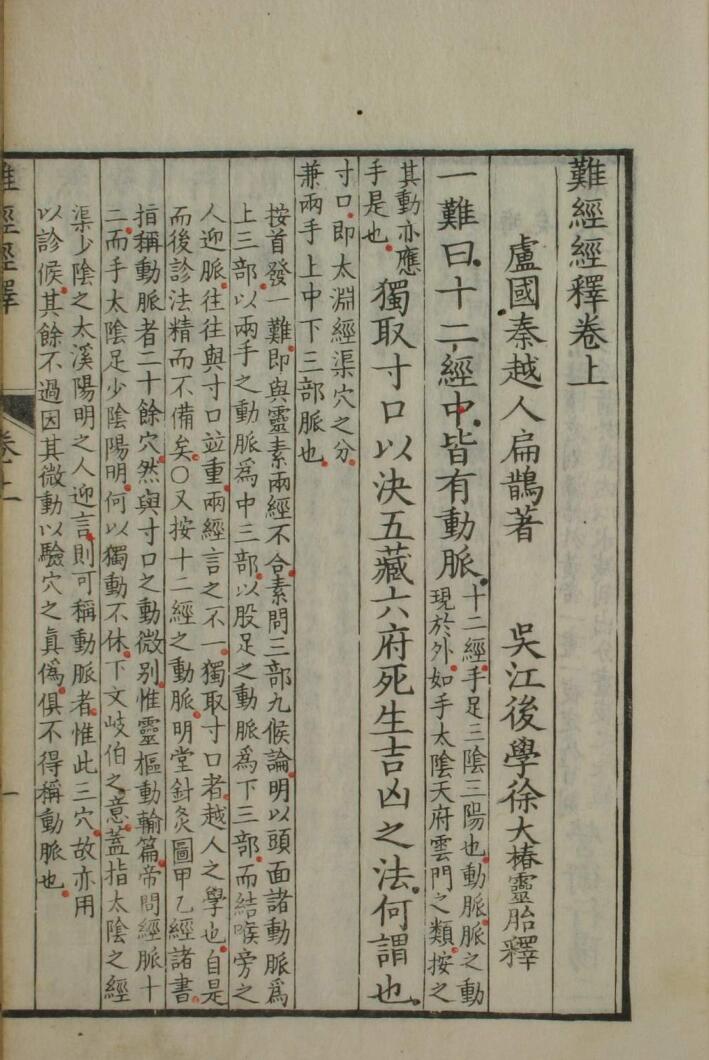 難經經釋卷上
盧國秦越人扁鵲著　吳江後學徐大椿靈胎釋
一難曰十二經中皆有動脈
十二經手足三陰三陽也動脈脈之動
現於外如手太陰天府雲門之類按之
其動亦應
手是也
獨取寸口以決五藏六府死生吉凶之法何謂也
寸口即太淵經渠穴之分
兼兩手上中下三部脈也
按首發一難即與靈素兩經不合素問三部九候論明以頭面諸動脈爲
上三部以兩手之動脈爲中三部以股足之動脈爲下三部而結喉旁之
人迎脈往往與寸口並重兩經言之不一獨取寸口者越人之學也自是
而後診法精而不備矣〇又按十二經之動脈明堂針灸圖甲乙經諸書
指稱動脈者二十餘穴然與寸口之動微別惟靈樞動輸篇帝問經脈十
二而手太陰足少陰陽明何以獨動不休下文岐伯之意蓋指太陰之經
渠少陰之太溪陽明之人迎言則可稱動脈者惟此三穴故亦用
以診候其餘不過因其微動以驗穴之眞僞俱不得稱動脈也
難經經釋
卷上
一